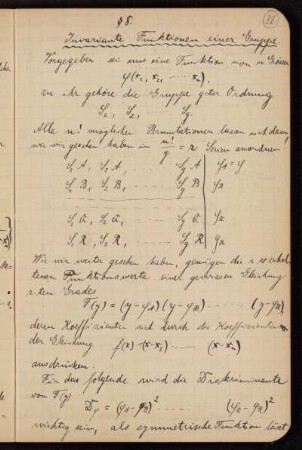 36
§ 8.
Invariante Funktionen einer Gruppe
Vorgegeben sei uns eine Funktion von n Grössen
φ(x₁, x₂, ..... xₙ),
zu ihr gehöre die Gruppe gter Ordnung
S₁, S₂, S_g.
Alle n! möglichen Permutationen lassen sich dann,
wie wir gesehen haben in n!/g = r Serien anordnen
S₁A, S₂A, ... S_gA | φ₁ = φ
S₁B, S₂B, ... S_gB | φ₂
S₁Q, S₂Q, ... S_gQ
S₁R, S₂R, ... S_gR | φᵣ
Wie wir weiter gesehen haben, genügen die r so erhal-
tenen Funktionswerte einer gewissen Gleichung
rten Grades
T(y) = (y-φ₁)(y-φ₂) ... (y-φᵣ)
deren Koeffizienten sich durch die Koeffizienten
der Gleichung f(x) = (x-x₁) ... (x-xₙ)
ausdrücken.
Für das folgende wird die Diskriminante
von T(y) D_T = (φ₁-φ₂)² ... 
wichtig sein, als symmetrische Funktion lässt